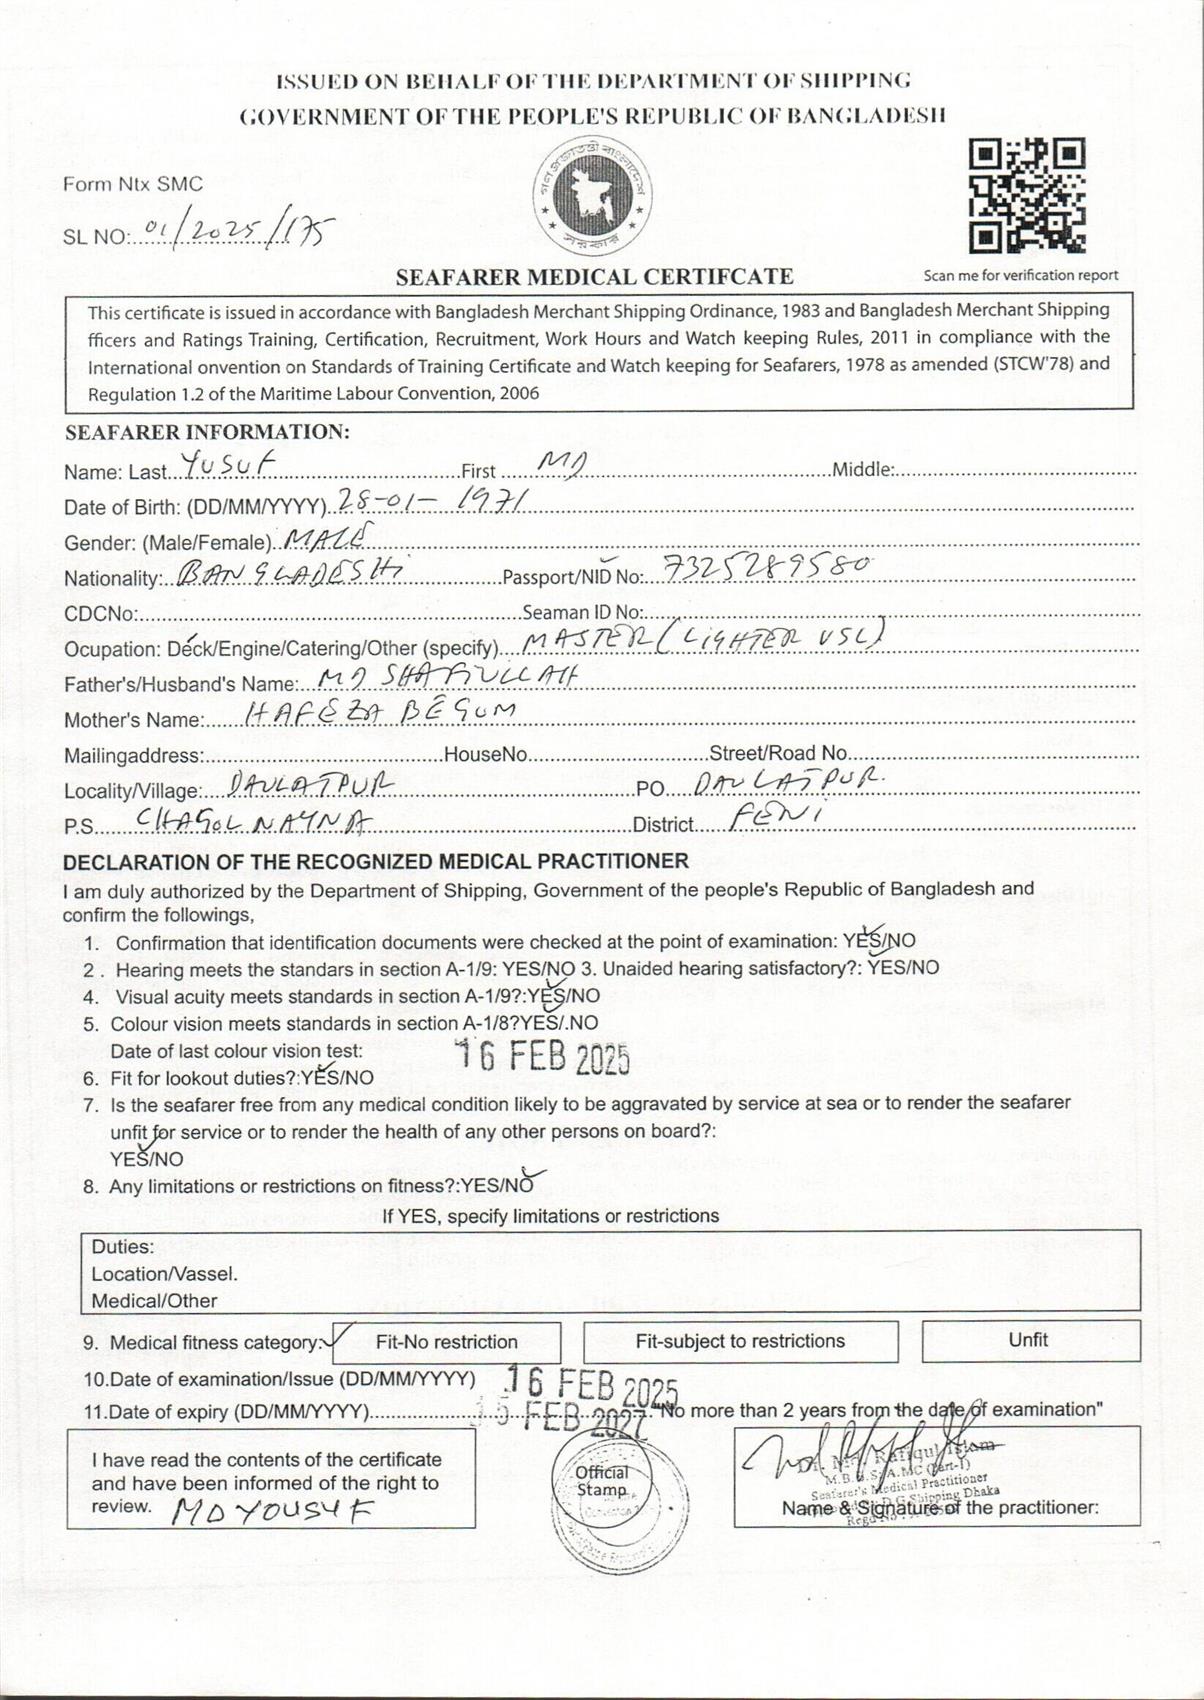 ISSUED ON BEHALF OF THE DEPARTMENT OF SHIPPING
GOVERNMENT OF THE PEOPLE'S REPUBLIC OF BANGLADESH
গণপ্রজাতন্ত্রী বাংলাদেশ
সরকার
Form Ntx SMC
SL NO: 01/2025/175
SEAFARER MEDICAL CERTIFCATE
Scan me for verification report
This certificate is issued in accordance with Bangladesh Merchant Shipping Ordinance, 1983 and Bangladesh Merchant Shipping
fficers and Ratings Training, Certification, Recruitment, Work Hours and Watch keeping Rules, 2011 in compliance with the
International onvention on Standards of Training Certificate and Watch keeping for Seafarers, 1978 as amended (STCW'78) and
Regulation 1.2 of the Maritime Labour Convention, 2006
SEAFARER INFORMATION:
Name: Last YUSUF First MD Middle:
Date of Birth: (DD/MM/YYYY) 28-01-1971
Gender: (Male/Female) MALE
Nationality: BANGLADESHI Passport/NID No: 7325289580
CDCNo: Seaman ID No:
Ocupation: Deck/Engine/Catering/Other (specify) MASTER (LIGHTER VSL)
Father's/Husband's Name: MD SHAFIULLAH
Mother's Name: HAFEZA BEGUM
Mailingaddress: HouseNo Street/Road No
Locality/Village: DAULATPUR PO DAULATPUR.
P.S CHAGOLNAYNA District FENI
DECLARATION OF THE RECOGNIZED MEDICAL PRACTITIONER
I am duly authorized by the Department of Shipping, Government of the people's Republic of Bangladesh and
confirm the followings,
1. Confirmation that identification documents were checked at the point of examination: YES/NO
2 . Hearing meets the standars in section A-1/9: YES/NO 3. Unaided hearing satisfactory?: YES/NO
4. Visual acuity meets standards in section A-1/9?:YES/NO
5. Colour vision meets standards in section A-1/8?YES/.NO
Date of last colour vision test: 16 FEB 2025
6. Fit for lookout duties?:YES/NO
7. Is the seafarer free from any medical condition likely to be aggravated by service at sea or to render the seafarer
unfit for service or to render the health of any other persons on board?:
YES/NO
8. Any limitations or restrictions on fitness?:YES/NO
If YES, specify limitations or restrictions
Duties:
Location/Vassel.
Medical/Other
9. Medical fitness category: Fit-No restriction Fit-subject to restrictions Unfit
10.Date of examination/Issue (DD/MM/YYYY) 16 FEB 2025
11.Date of expiry (DD/MM/YYYY) 15 FEB 2027 "No more than 2 years from the date of examination"
I have read the contents of the certificate
and have been informed of the right to
review. MD YOUSUF
Official
Stamp
Dr. Md. Rafiqul Islam
M.B.B.S, A.MC (Part-1)
Seafarer's Medical Practitioner
D.G Shipping Dhaka
Regd No
Name & Signature of the practitioner: